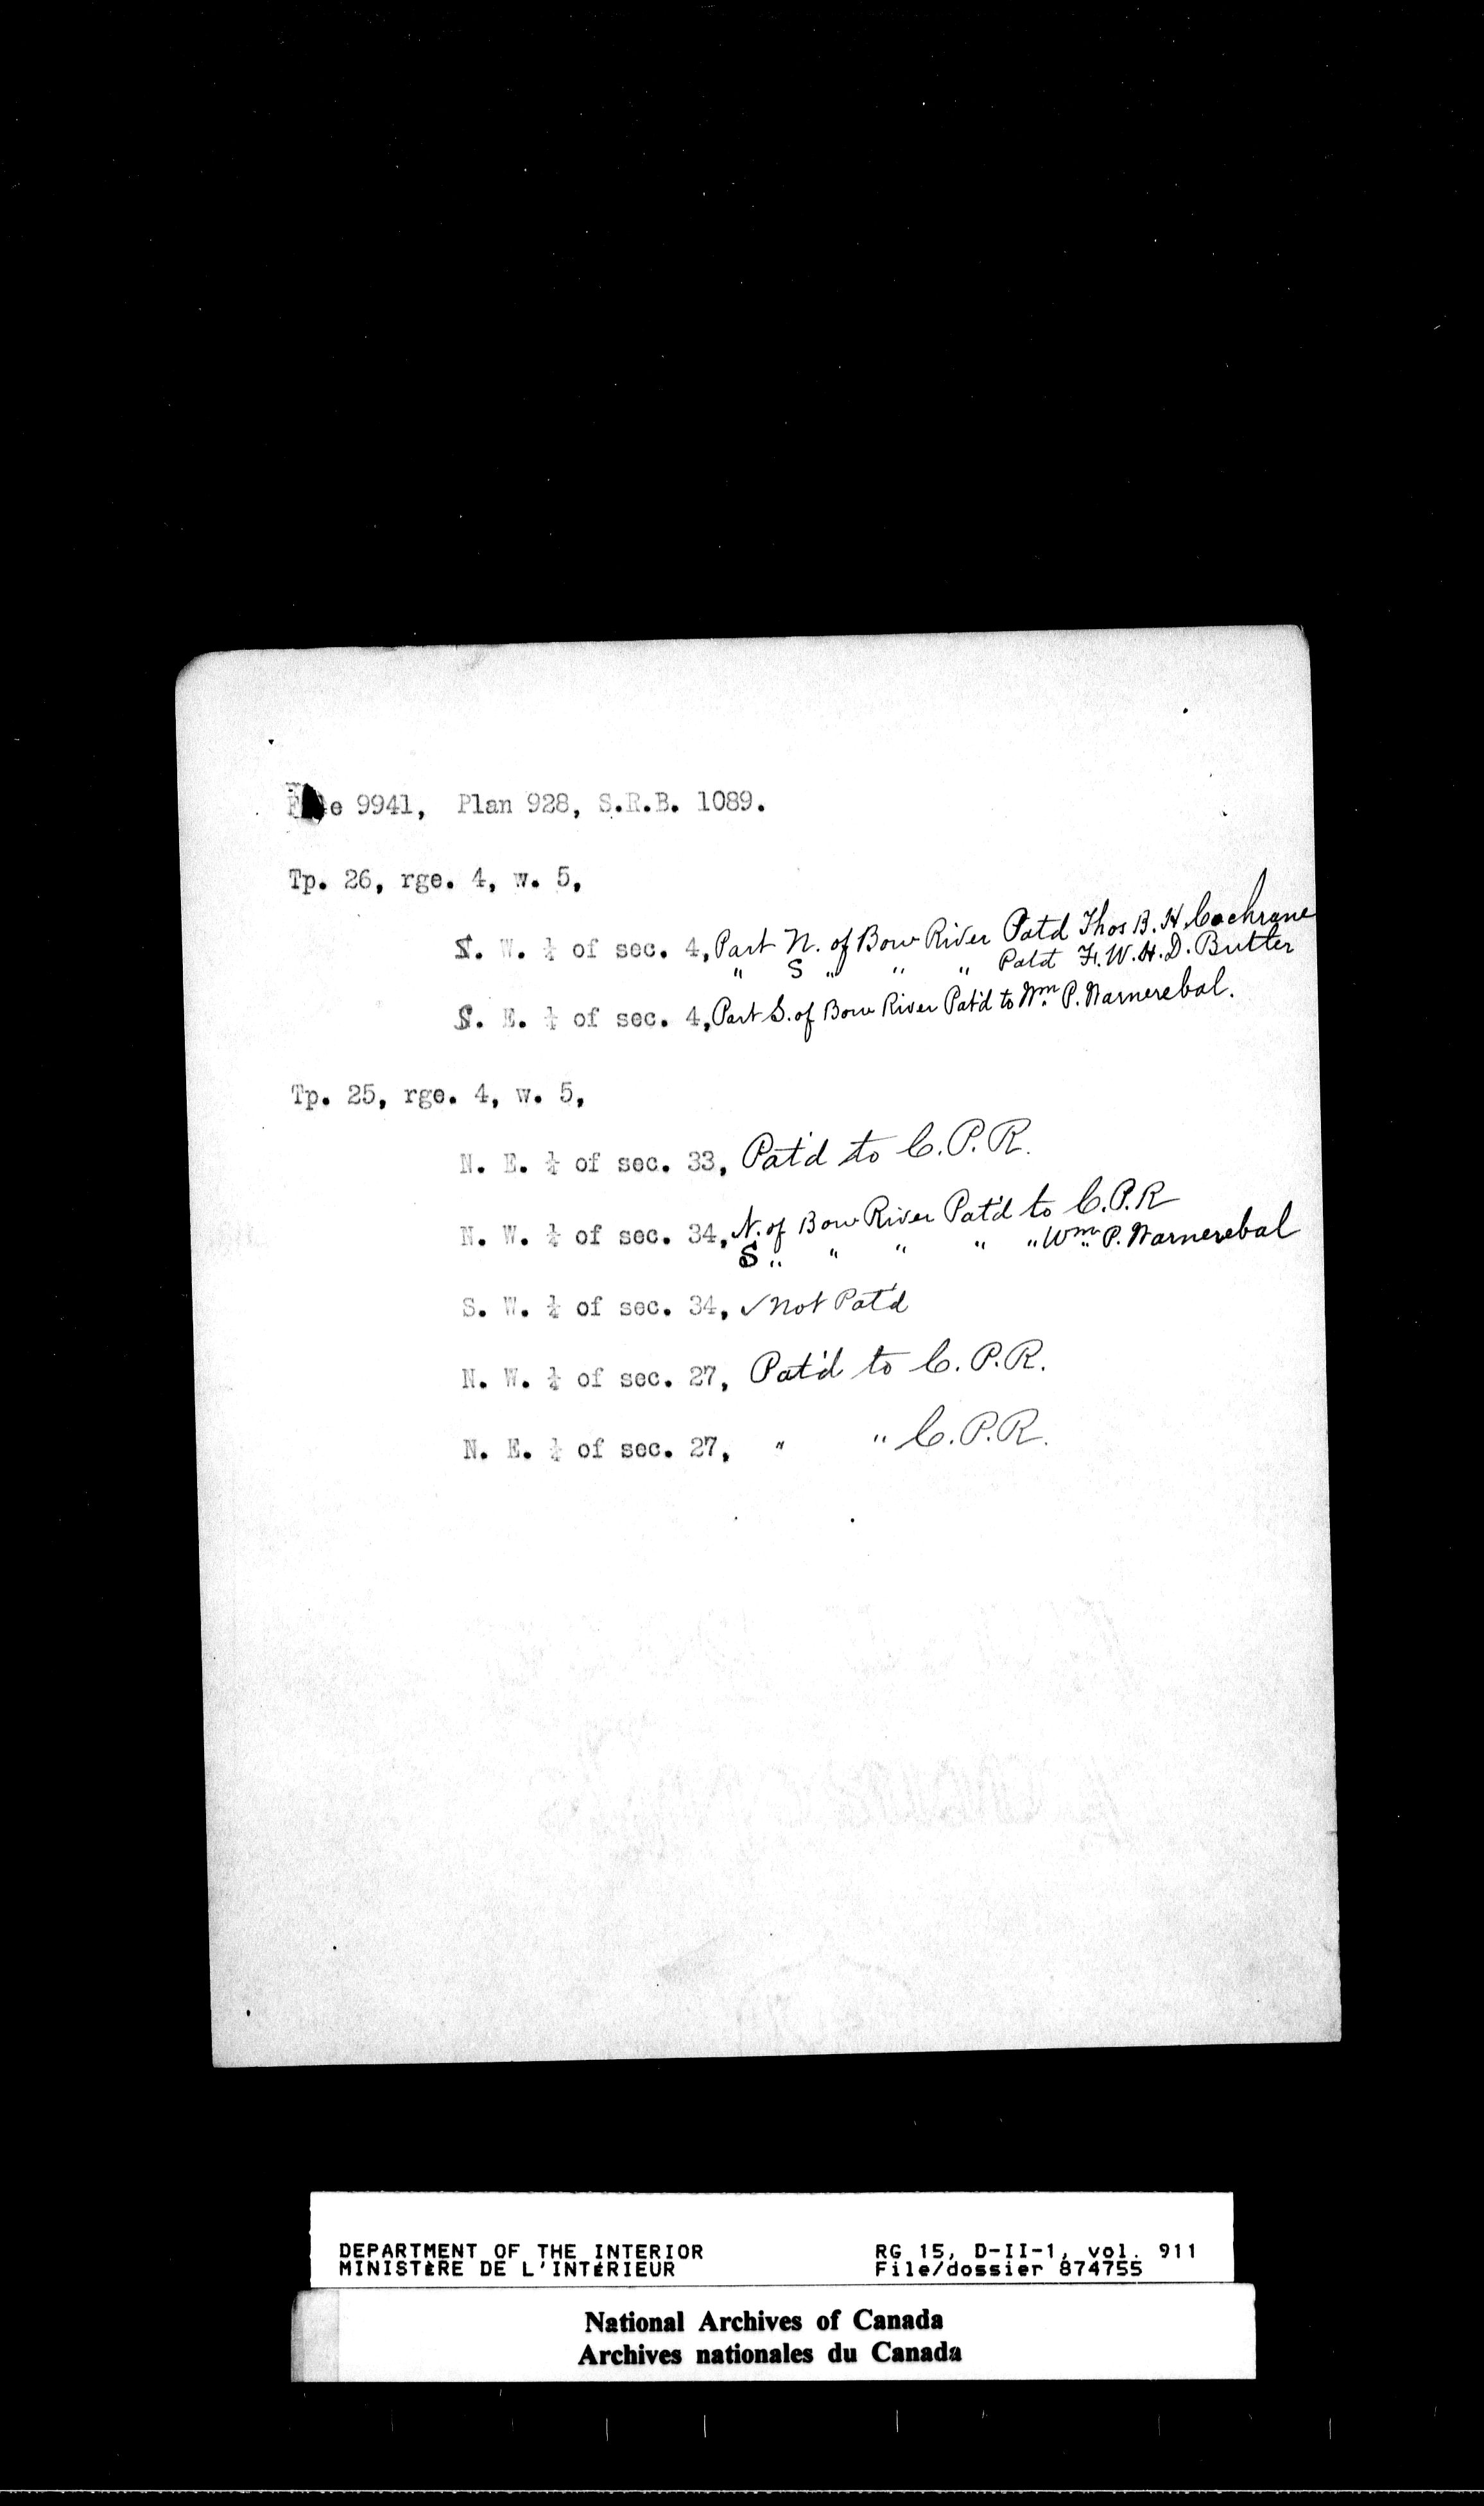 File 9941, Plan 928, S.R.B. 1089.
Tp. 26, rge. 4, w. 5,
S. W. ¼ of sec. 4, Part N. of Bow River Patd Thos B. H. Cochrane
" S " " " Patd F. W. H. D. Butler
S. E. ¼ of sec. 4, Part S. of Bow River Pat'd to Wm. P. Warnerebal.
Tp. 25, rge. 4, w. 5,
N. E. ¼ of sec. 33, Pat'd to C.P.R.
N. W. ¼ of sec. 34, N. of Bow River Pat'd to C.P.R
S " " " " " Wm. P. Warnerebal
S. W. ¼ of sec. 34, ✓ Not Pat'd
N. W. ¼ of sec. 27, Pat'd to C.P.R.
N. E. ¼ of sec. 27, " " C.P.R.
DEPARTMENT OF THE INTERIOR RG 15, D-II-1, vol. 911
MINISTÈRE DE L'INTÉRIEUR File/dossier 874755
National Archives of Canada
Archives nationales du Canada